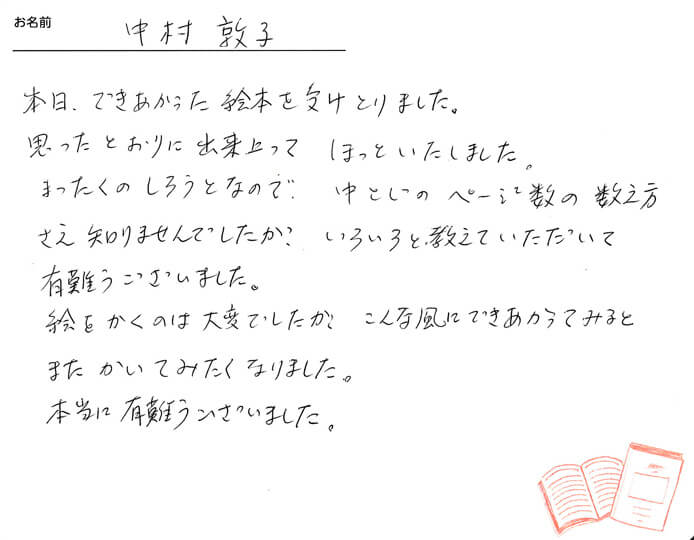 お名前 中村 敦子
本日、できあがった 絵本を受けとりました。
思ったとおりに 出来上って ほっといたしました。
まったくの しろうとなので、 中とじの ページ数の 数え方
さえ 知りませんでしたが、 いろいろと教えていただいて
有難うございました。
絵をかくのは 大変でしたが、 こんな風にできあがってみると
また かいてみたくなりました。
本当に 有難うございました。